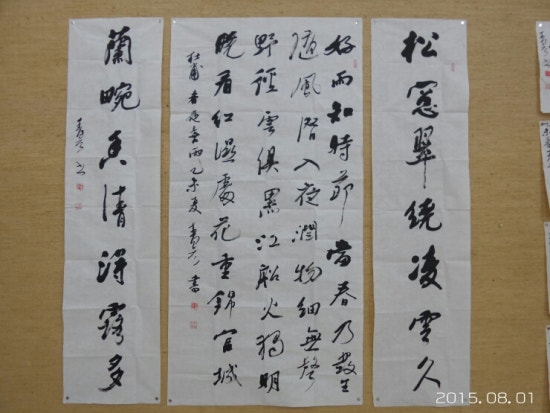 松窓翠繞凌雲久
好雨知時節當春乃發生
隨風潛入夜潤物細無聲
野徑雲俱黑江船火獨明
曉看紅濕處花重錦官城
杜甫 春夜喜雨 乙未夏 書
蘭畹香清得露多
2015.08.01